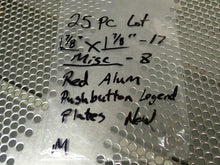 25 PC Lot
1 7/8" x 1 7/8" - 17
Misc - 8
Red Alum
Pushbutton Legend
Plates New
M